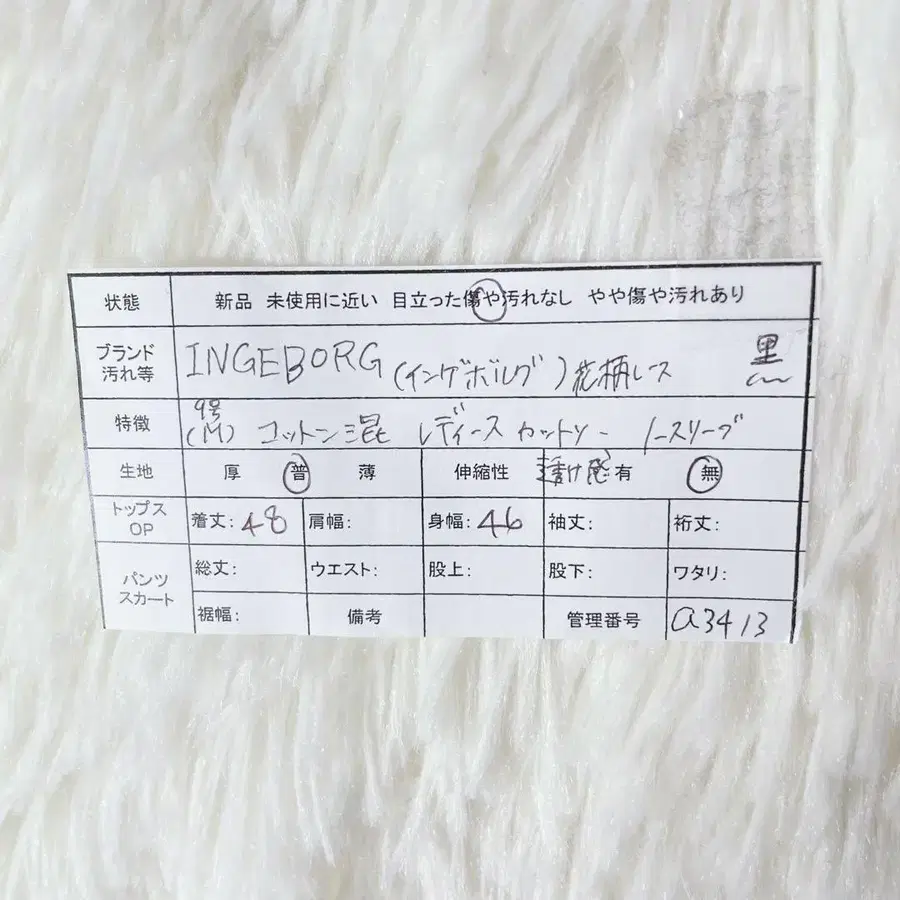 状態 新品 未使用に近い 目立った傷や汚れなし やや傷や汚れあり
ブランド 汚れ等 INGEBORG (インゲボルグ) 花柄レース 黒
特徴 9号 (M) コットン混 レディース カットソー ノースリーブ
生地 厚 普 薄 伸縮性 透け感 有 無
トップス OP 着丈: 48 肩幅: 身幅: 46 袖丈: 裄丈:
パンツ スカート 総丈: ウエスト: 股上: 股下: ワタリ:
裾幅: 備考 管理番号 a3413